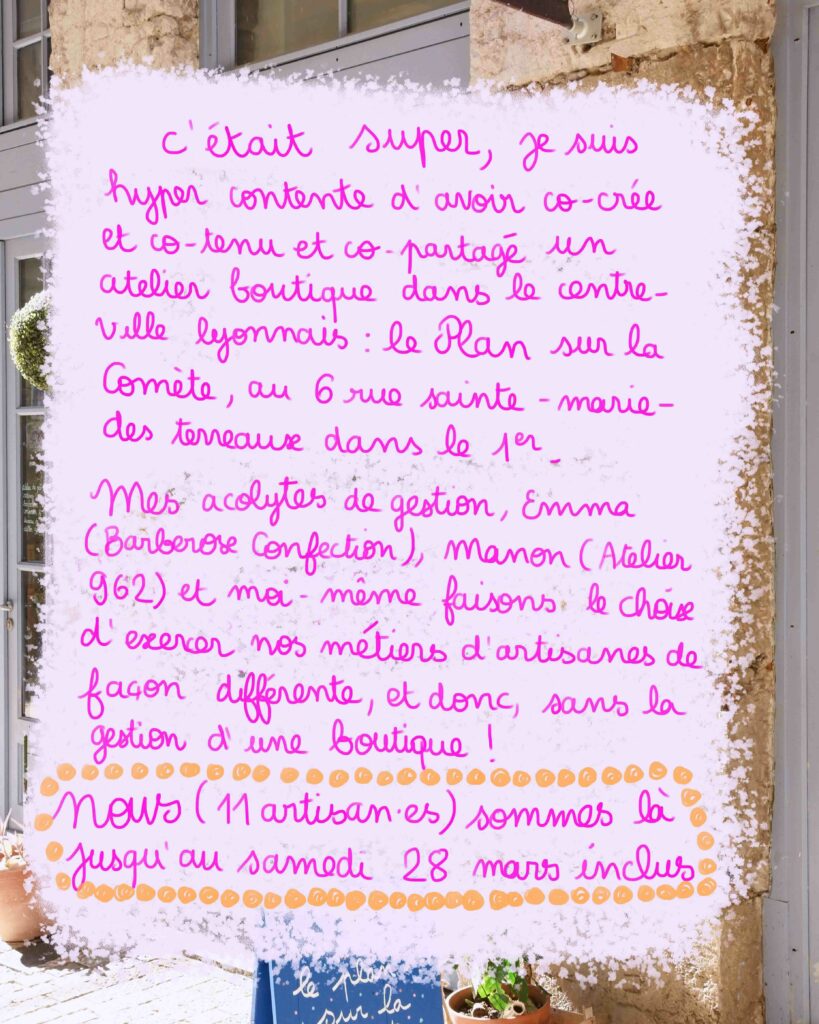 c'était super, je suis
hyper contente d'avoir co-crée
et co-tenu et co-partagé un
atelier boutique dans le centre-
ville lyonnais : le Plan sur la
Comète, au 6 rue sainte-marie-
des terreaux dans le 1er.
Mes acolytes de gestion, Emma
(Barberose Confection), Manon (Atelier
962) et moi-même faisons le choix
d'exercer nos métiers d'artisanes de
façon différente, et donc, sans la
gestion d'une boutique !
Nous (11 artisan·es) sommes là
jusqu'au samedi 28 mars inclus
le plan
sur la